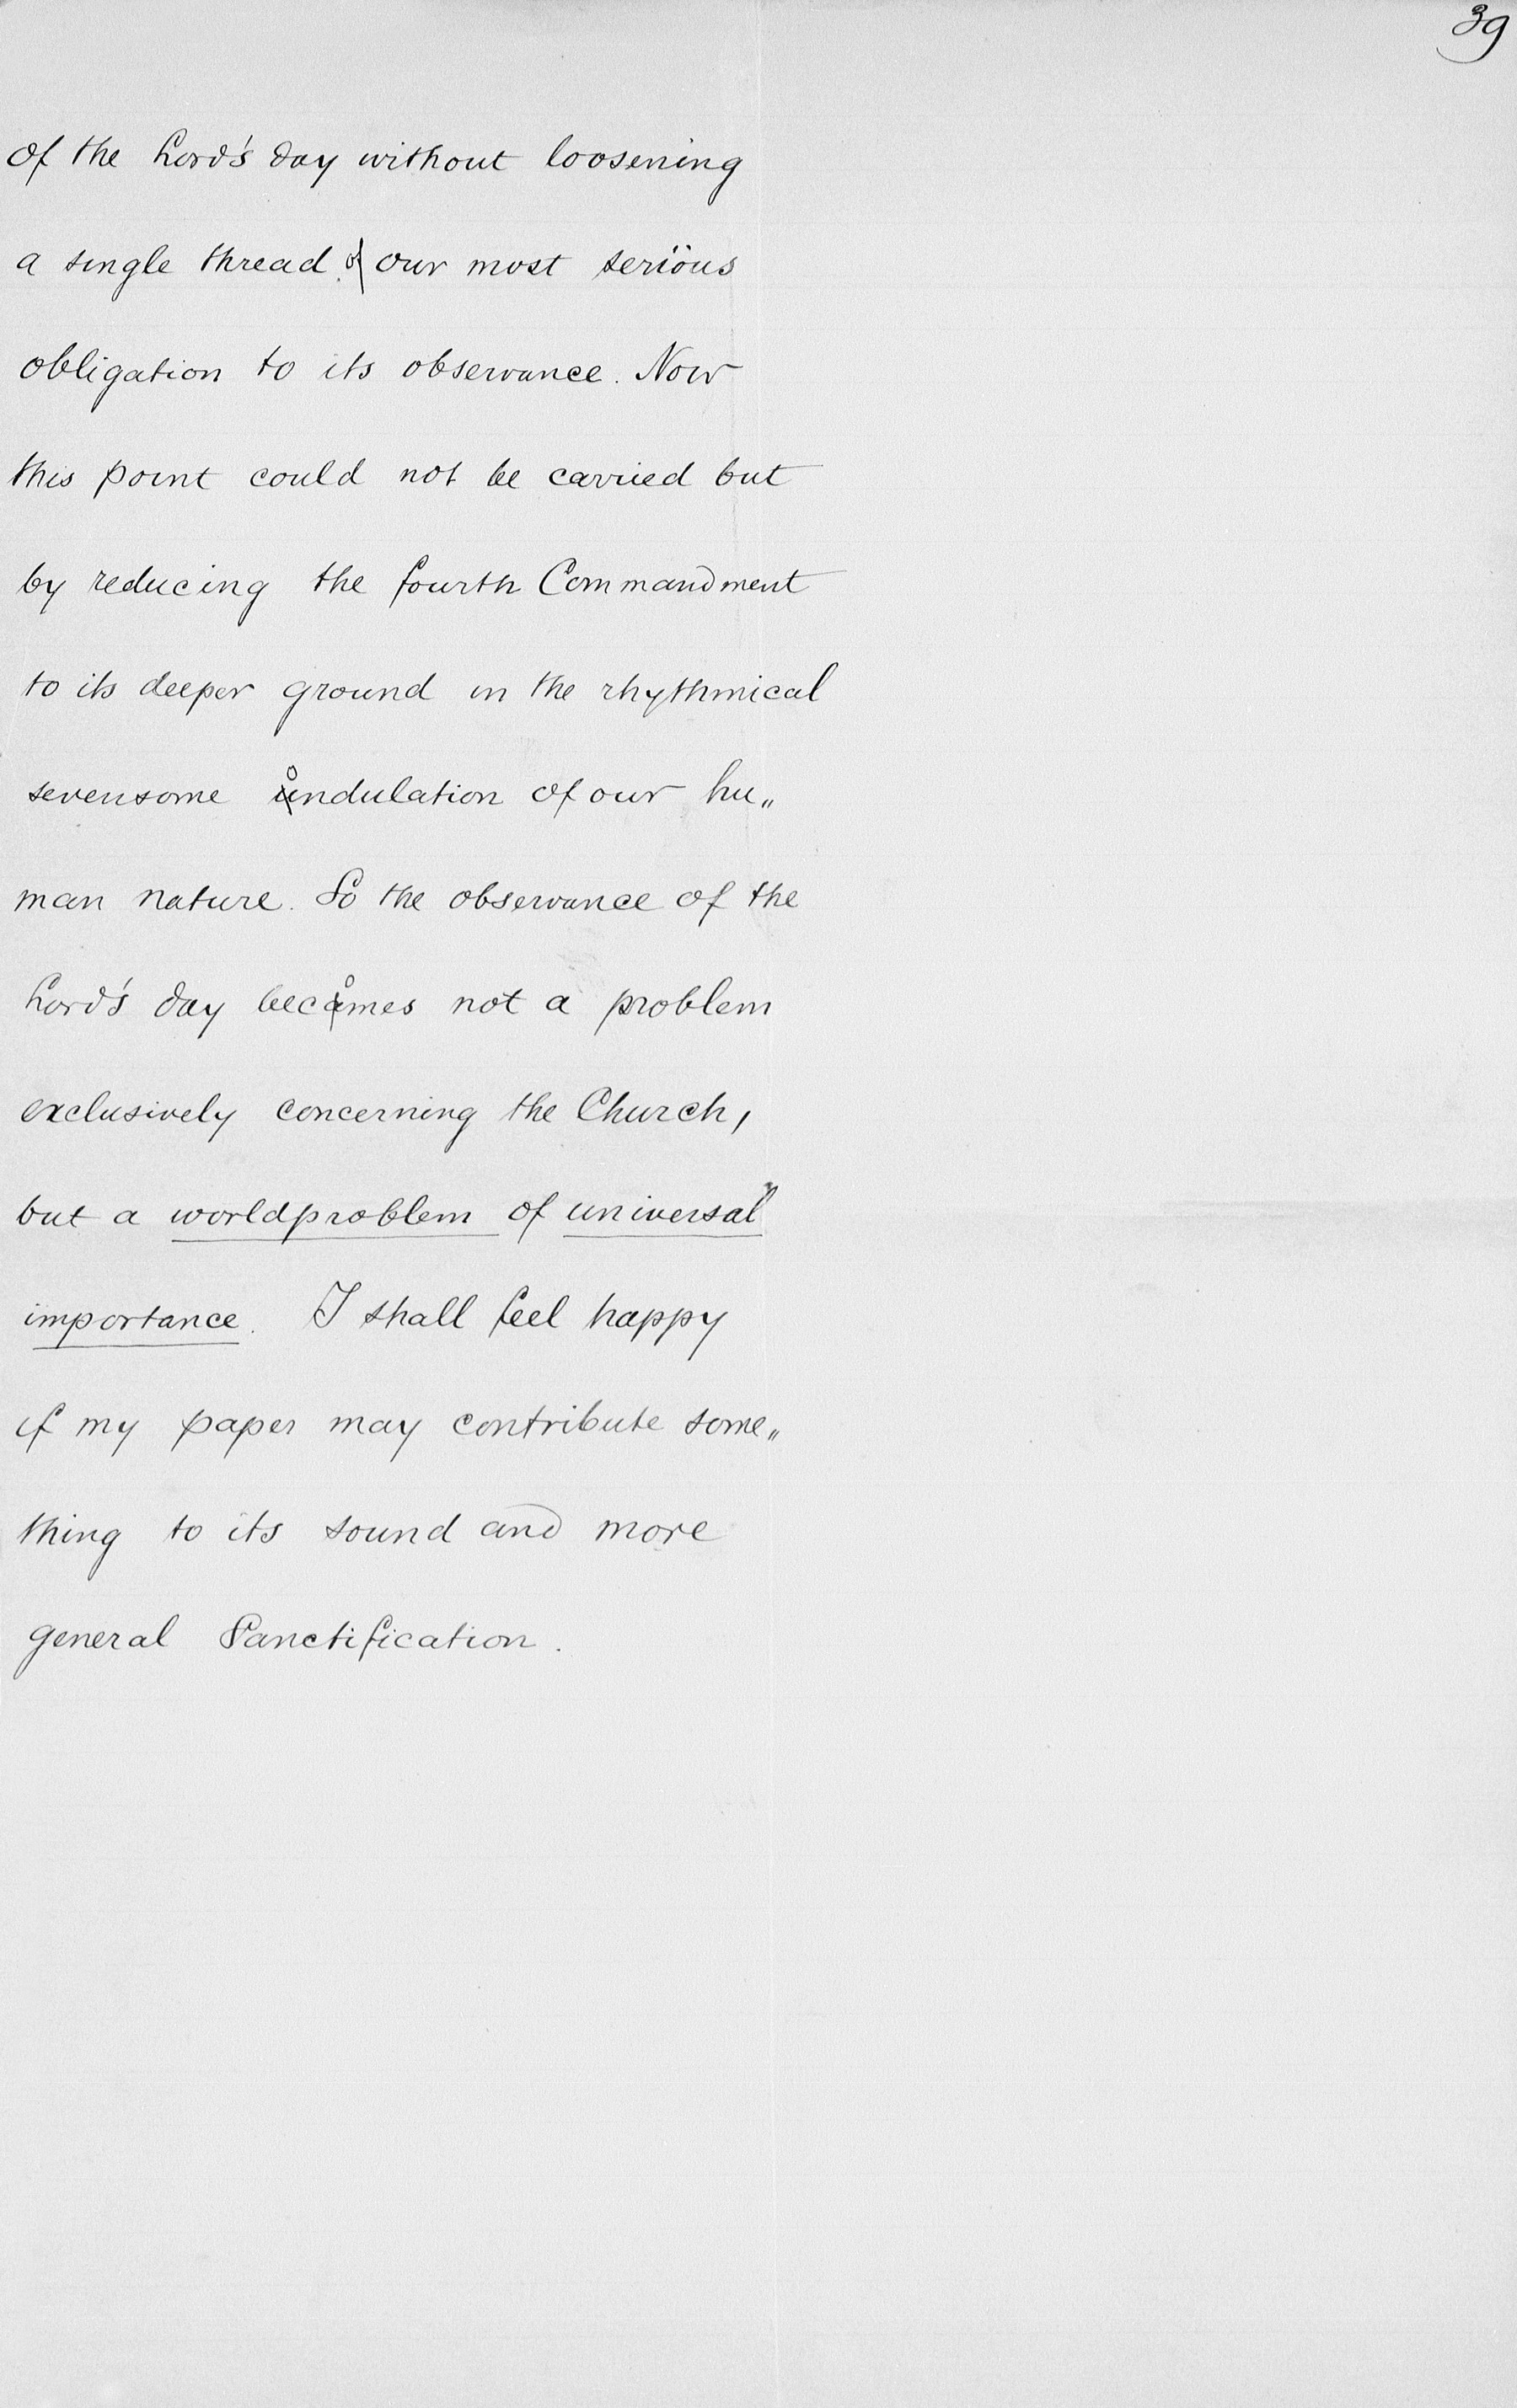 39
of the Lord's day without loosening
a single thread of our most serious
obligation to its observance. Now
this point could not be carried but
by reducing the fourth Commandment
to its deeper ground in the rhythmical
sevensome ondulation of our hu„
man nature. So the observance of the
Lord's day becomes not a problem
exclusively concerning the Church,
but a worldproblem of universal
importance. I shall feel happy
if my paper may contribute some„
thing to its sound and more
general Sanctification.